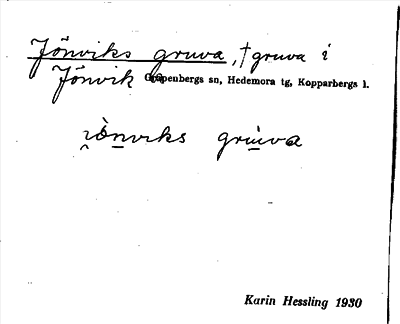 Jönviks gruva, † gruva i
Jönvik Garpenbergs sn, Hedemora tg, Kopparbergs l.
i̯ö̀n̲viks grù̲va
Karin Hessling 1930